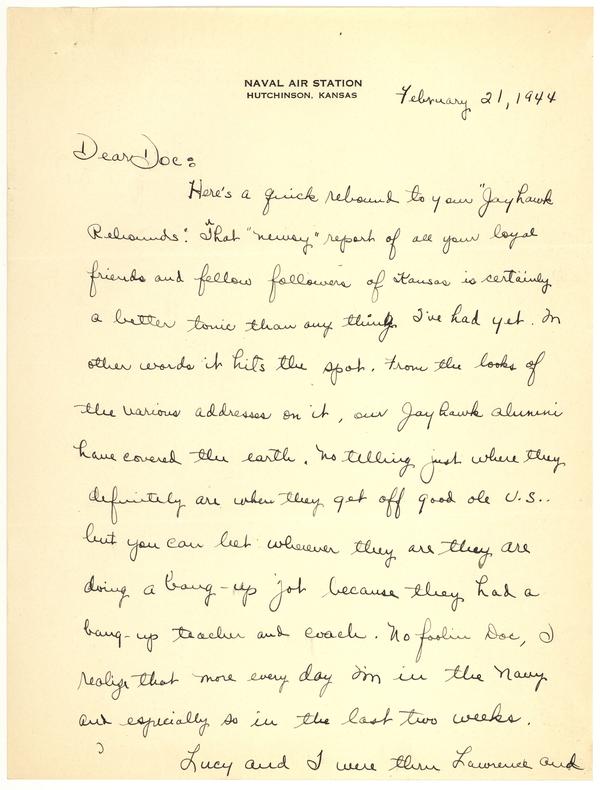 NAVAL AIR STATION
HUTCHINSON, KANSAS
February 21, 1944
Dear Doc:
Here's a quick rebound to your "Jayhawk
Rebounds". That "newsy" report of all your loyal
friends and fellow followers of Kansas is certainly
a better tonic than any thing I've had yet. In
other words it hits the spot. From the looks of
the various addresses on it, our Jayhawk alumini
have covered the earth. No telling just where they
definitely are when they get off good ole U.S..
but you can bet wherever they are they are
doing a bang-up job because they had a
bang-up teacher and coach. No foolin Doc, I
realize that more every day I'm in the Navy
and especially so in the last two weeks.
Lucy and I were thru Lawrence and